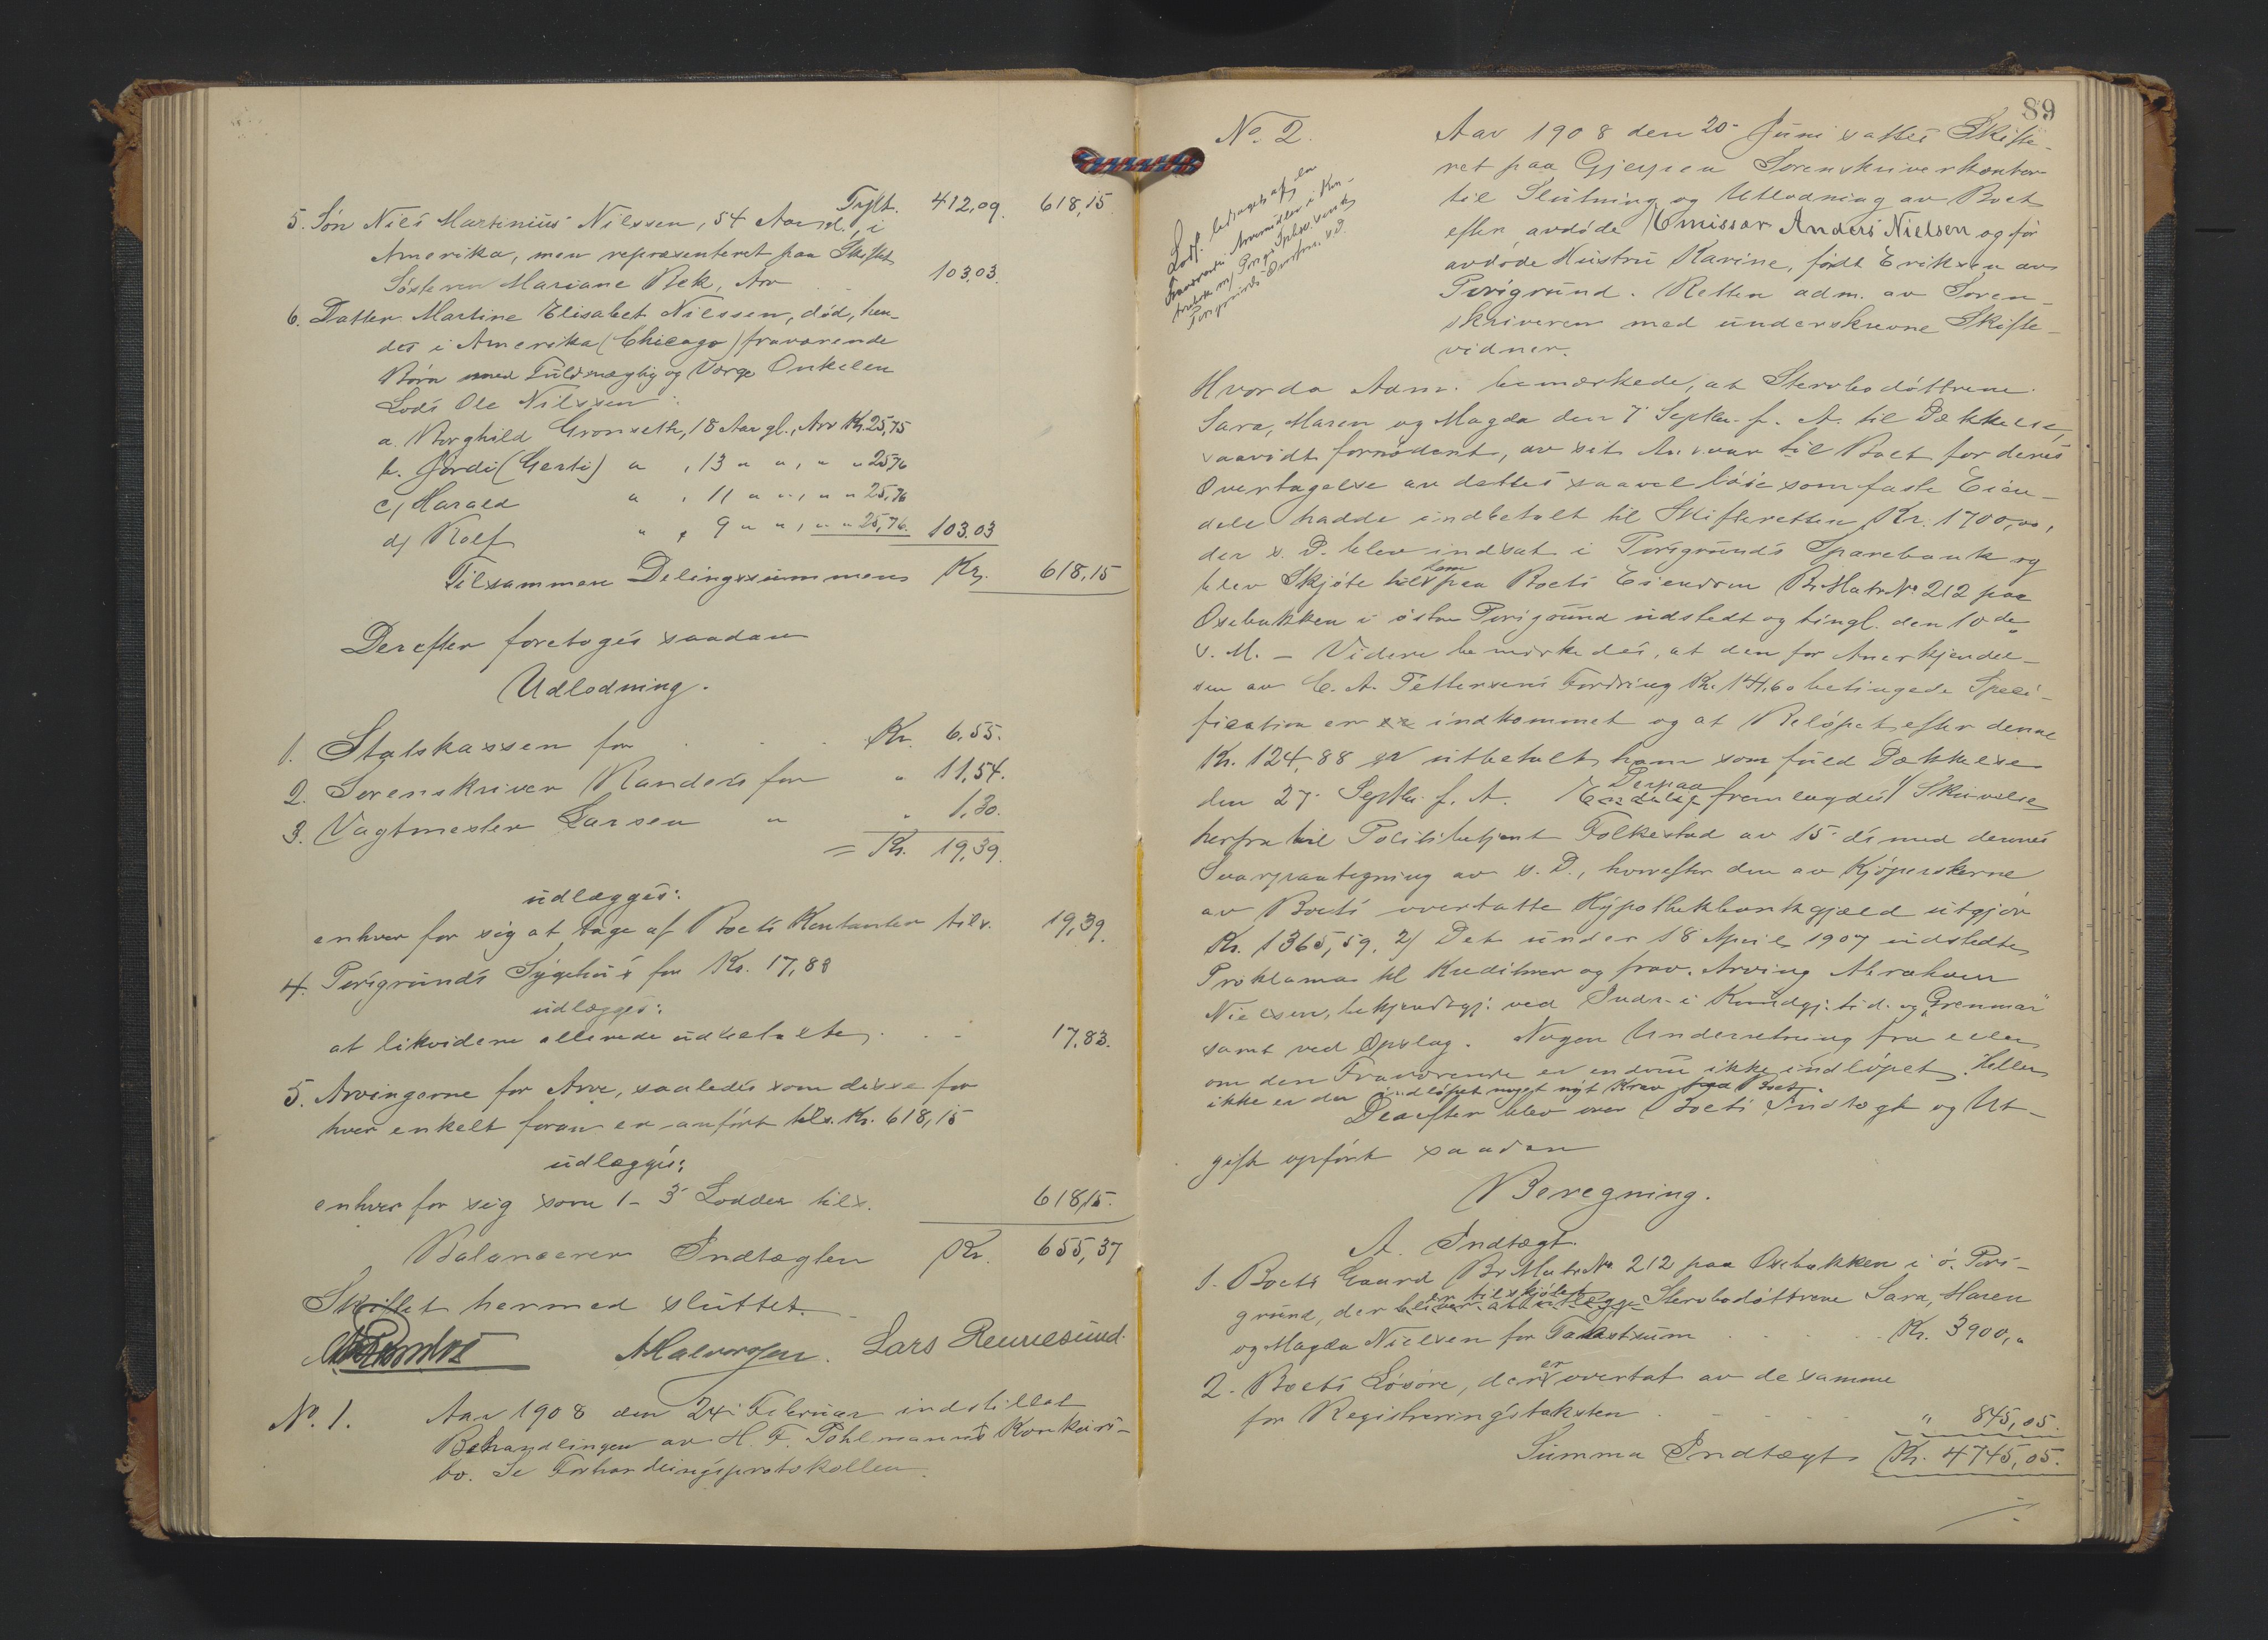 Tylt. 412,09. 618,15.
5. Søn Nils Martinius Nilssen, 54 Aar gl., i
Amerika, men repræsenteret paa Skiftet
Søsteren Mariane Bek, Arv 103,03.
6. Datter Martine Elisabet Nilssen, død, hen-
des i Amerika (Chicago) fraværende
Børn med Fuldmægtig og Værge Onkelen
Lods Ole Nilssen:
a. Borghild Gronseth, 18 Aar gl., Arv Kr. 25,75
b. Gordi (Gerti) " , 13 " " , " " 25,76
c) Harald " , 11 " " , " " 25,76
d) Rolf " , 9 " " , " " 25,76. 103.03
Tilsammen Delingssummen Kr. 618,15
Derefter foretoges saadan
Udlodning.
1. Statskassen for . . . Kr. 6,55.
2. Sorenskriver Randers for " 11,54.
3. Vagtmester Larsen " " 1,30.
= Kr. 19,39.
udlægges:
enhver for sig at tage af Boets Kontanter tils. 19,39.
4. Porsgrunds Sygehus for Kr. 17,83
udlægges:
at likvidere allerede udbetalte . . - 17,83.
5. Arvingerne for Arv, saaledes som disse for
hver enkelt foran er anført tils. Kr. 618,15
udlægges:
enhver for sig som 1-3 Lodder tils. 618,15.
Balancerer Indtægten Kr. 655,37
Skiftet hermed sluttet.
A Halvorsen. Lars Rennesund.
No. 1. Aar 1908 den 24 Februar indstillet
Behandlingen av H. F. Pohlmanns Konkurs-
bo. Se Forhandlingsprotokollen.
89
No. 2.
Aar 1908 den 20 Juni sattes Skifte-
ret paa Gjerpen Sorenskriverkontor
til Slutning og Utlodning av Boet
efter avdøde Emissær Anders Nielsen og før
avdøde Hustru Karine, født Eriksen av
Porsgrund. Retten adm. av Soren-
skriveren med underskrevne Skifte-
vidner.
Hvorda Adm. bemærkede, at Stervbodøttrene
Sara, Maren og Magda den 7 Septbr. f. A. til Dækkelse,
saavidt fornødent, av sit Ansvar til Boet for deres
Overtagelse av dettes saavel løse som faste Eien-
dele hadde indbetalt til Skifteretten Kr. 1700,00,
der s. D. blev indsat i Porsgrunds Sparebank og
blev Skjøte til dem paa Boets Eiendom Br. Matr. No 212 paa
Oxebakken i østre Porsgrund udstedt og tingl. den 10de
s. M. - Videre bemerkedes, at den for Anerkjendel-
sen av C. A. Pettersens Fordring Kr. 141,60 betingede Speci-
fication er indkommet og at Beløpet efter denne
Kr. 124,88 er utbetalt ham som fuld Dækkelse
den 27 Septbr. f. A. Derpaa fremlagdes 1) Skrivelse
herfra til Politibetjent Folkestad av 15 ds med dennes
Svarpaategning av s. D., hvorefter den av Kjøperskerne
av Boets overtatte Hypothekbankgjæld utgjør
Kr. 1365,59. 2) Det under 18 April 1907 udstedte
Proklama til Kreditorer og frav. Arving Abraham
Nielsen, bekjendtgj. ved Indr. i Kundgj. tid. og "Grenmar"
samt ved Opslag. Nogen Underretning fra eller
om den Fraværende er endnu ikke indløpet. Heller
ikke er der indløpet noget nyt Krav Boet.
Derefter blev over Boets Indtægt og Ut-
gift opført saadan
Beregning.
A. Indtægt.
1. Boets Gaard Br. Matr. No 212 paa Oxebakken i ø. Pors-
grund, der er tilskjødet Stervbodøttrene Sara, Maren
og Magda Nielsen for Takstsum . . . Kr. 3900,"
2. Boets Løsøre, der er overtat av de samme
for Registreringstaksten . . . . " 845,05.
Summa Indtægt Kr. 4745,05.